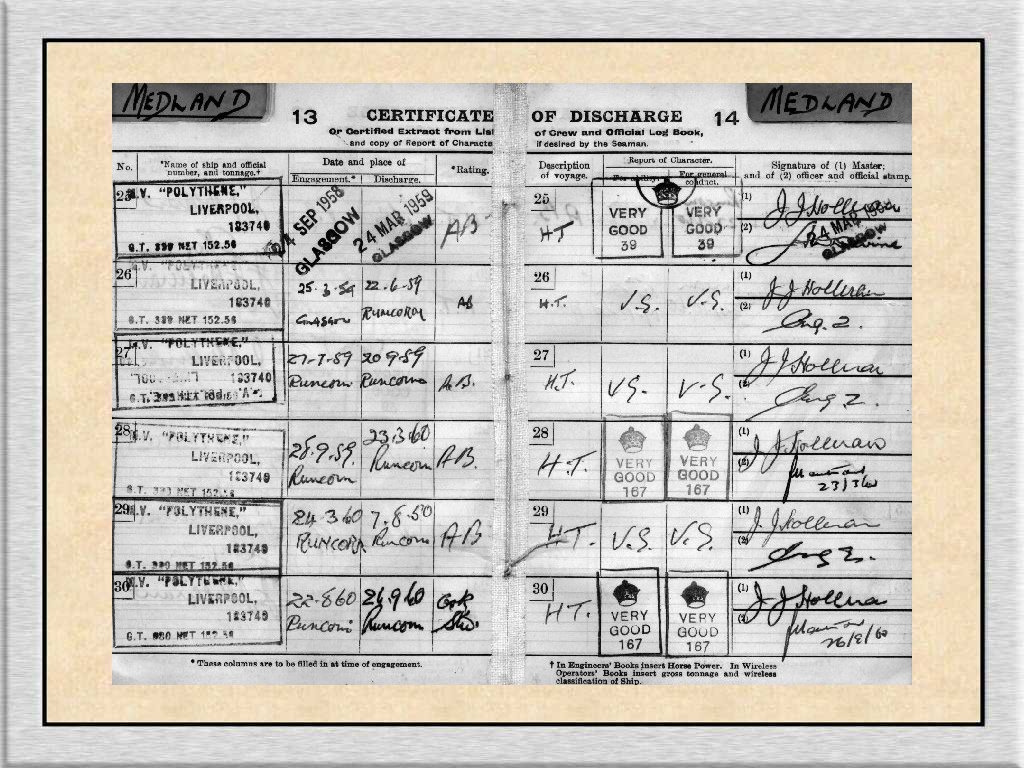 MEDLAND
13 CERTIFICATE
Or Certified Extract from List
and copy of Report of Characte
No.
*Name of ship and official number, and tonnage.†
Date and place of
Engagement.*
Discharge.
*Rating.
25
M.V. "POLYTHENE,"
LIVERPOOL,
183740
G.T. 380 NET 152.56
24 SEP 1958
GLASGOW
24 MAR 1959
GLASGOW
AB
26
M.V. "POLYTHENE,"
LIVERPOOL,
183740
G.T. 380 NET 152.56
25-3-59
Glasgow
22-6-59
RUNCORN
AB
27
M.V. "POLYTHENE,"
LIVERPOOL,
183740
27-7-59
Runcorn
20 9-59
Runcorn
A.B.
28
M.V. "POLYTHENE,"
LIVERPOOL,
183740
NET 152.56
25-9.59.
Runcorn
23.3.60
Runcorn
A.B.
29
M.V. "POLYTHENE,"
LIVERPOOL,
183740
G.T. 380 NET 152.56
24-3-60
RUNCORN
7.8-50
Runcorn
AB
30
M.V. "POLYTHENE,"
LIVERPOOL,
183740
G.T. 380 NET 152.56
22-8.60
Runcorn
26.9.60
Runcorn
*These columns are to be filled in at time of engagement.
MEDLAND
OF DISCHARGE 14
of Crew and Official Log Book,
if desired by the Seaman.
Description of voyage.
Report of Character.
For ability.
For general conduct.
Signature of (1) Master; and of (2) officer and official stamp.
25
H.T
VERY GOOD 39
VERY GOOD 39
(1) J J Hollman
(2)
24 MAR 1959
GLASGOW
26
H.T.
V.G.
V.G.
(1) J J Hollman
(2)
27
H.T.
V.G.
V.G.
(1) J J Hollman
(2)
28
H.T.
VERY GOOD 167
VERY GOOD 167
(1) J J Hollman
(2)
23/3/60
29
H.T.
V.G.
V.G.
(1) J. J. Hollman
(2)
30
H T.
VERY GOOD 167
VERY GOOD 167
(1) J J Hollman
(2)
26/9/60
† In Engineers' Books insert Horse Power. In Wireless
Operators' Books insert gross tonnage and wireless
classification of Ship.